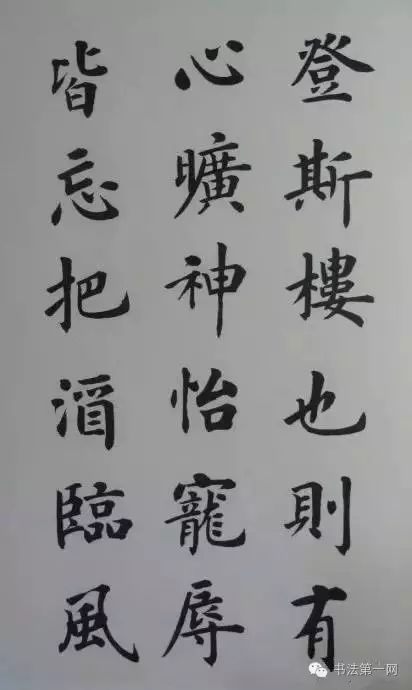 登斯樓也則有
心曠神怡寵辱
皆忘把酒臨風
书法第一网